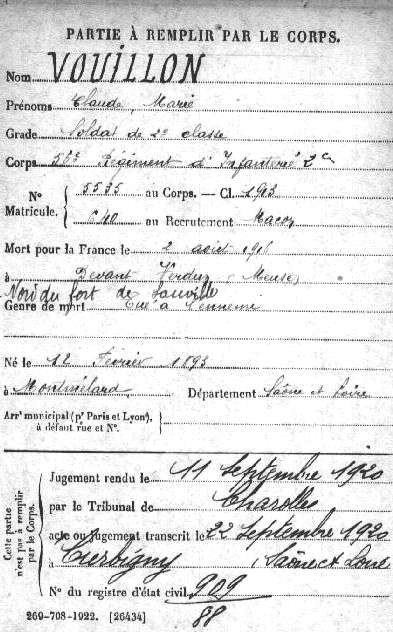 PARTIE À REMPLIR PAR LE CORPS.
Nom VOUILLON
Prénoms Claude Marie
Grade Soldat de 2e classe
Corps 56e Régiment d'Infanterie
No Matricule. 5535 au Corps. — Cl. 1913
640 au Recrutement Macon
Mort pour la France le 2 août 1916
à Devant Verdun (Meuse)
Nord du fort de Souville
Genre de mort Tué à l'ennemi
Né le 12 Février 1893
à Montmélard Département Saône et Loire
Arrt municipal (pr Paris et Lyon),
à défaut rue et No.
Cette partie n'est pas à remplir par le Corps.
Jugement rendu le 11 Septembre 1920
par le Tribunal de Charolles
acte ou jugement transcrit le 22 Septembre 1920
à (Saône et Loire
No du registre d'état civil 909
88
269-708-1922. [26434]